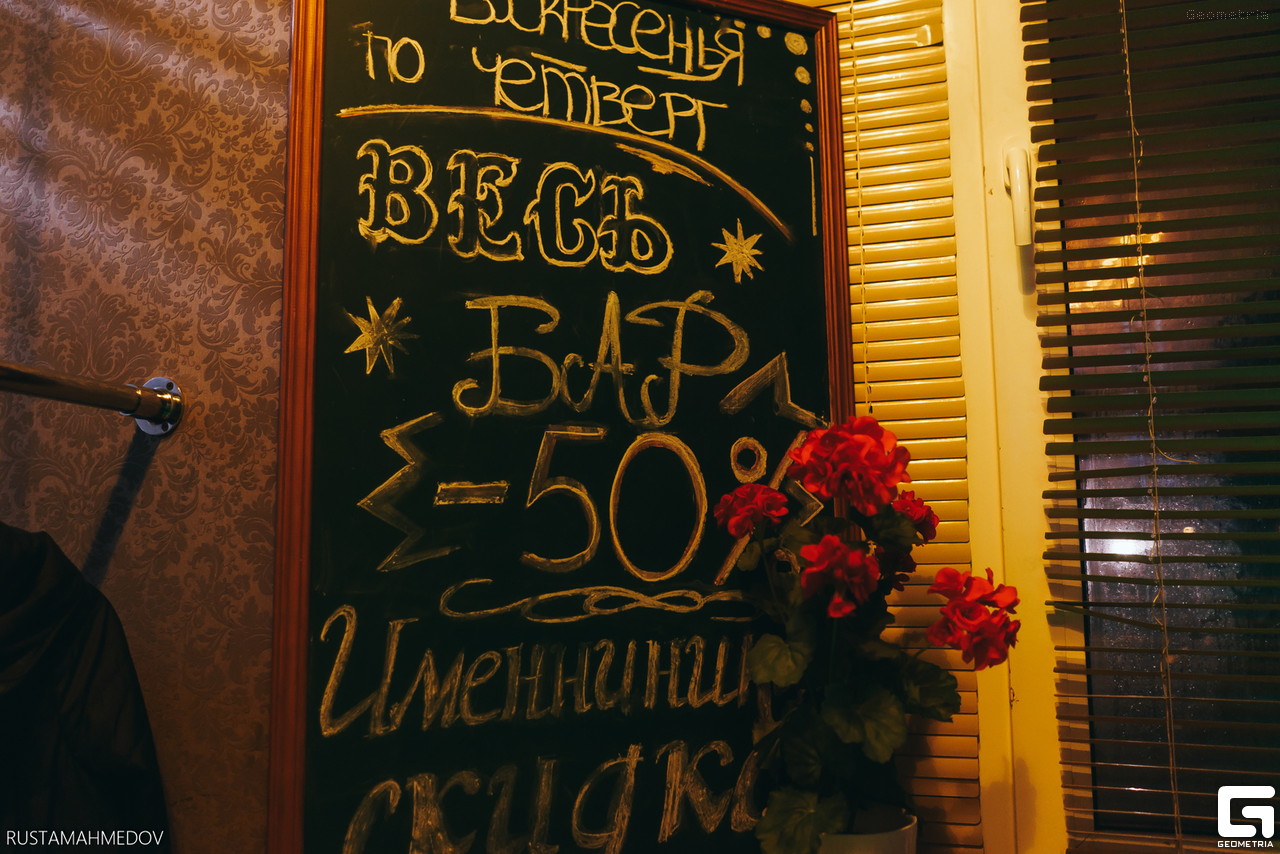 Geometria
Воскресенья
по четверг
ВЕСЬ
БАР
-50%
RUSTAMAHMEDOV
GEOMETRIA